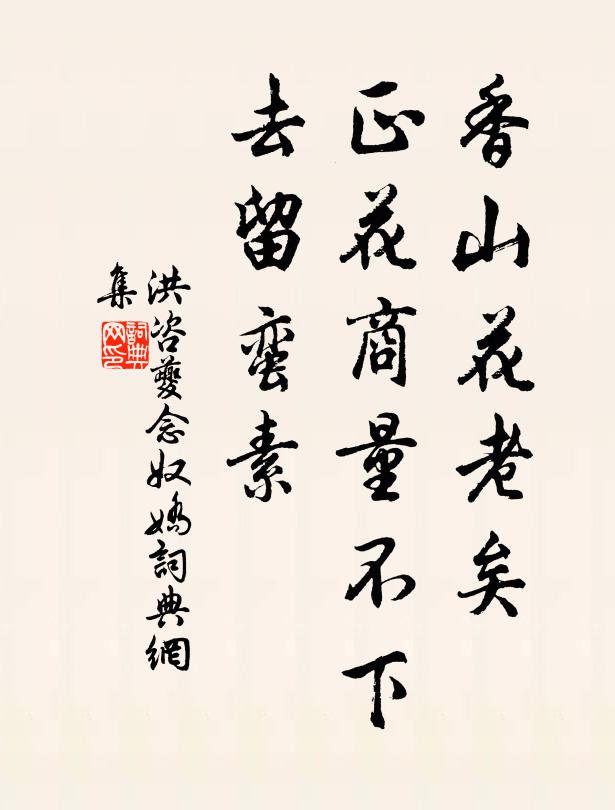 香山花老矣
正花商量不下
去留蠻素
洪咨夔念奴嬌詞典網
集
詞典
网印